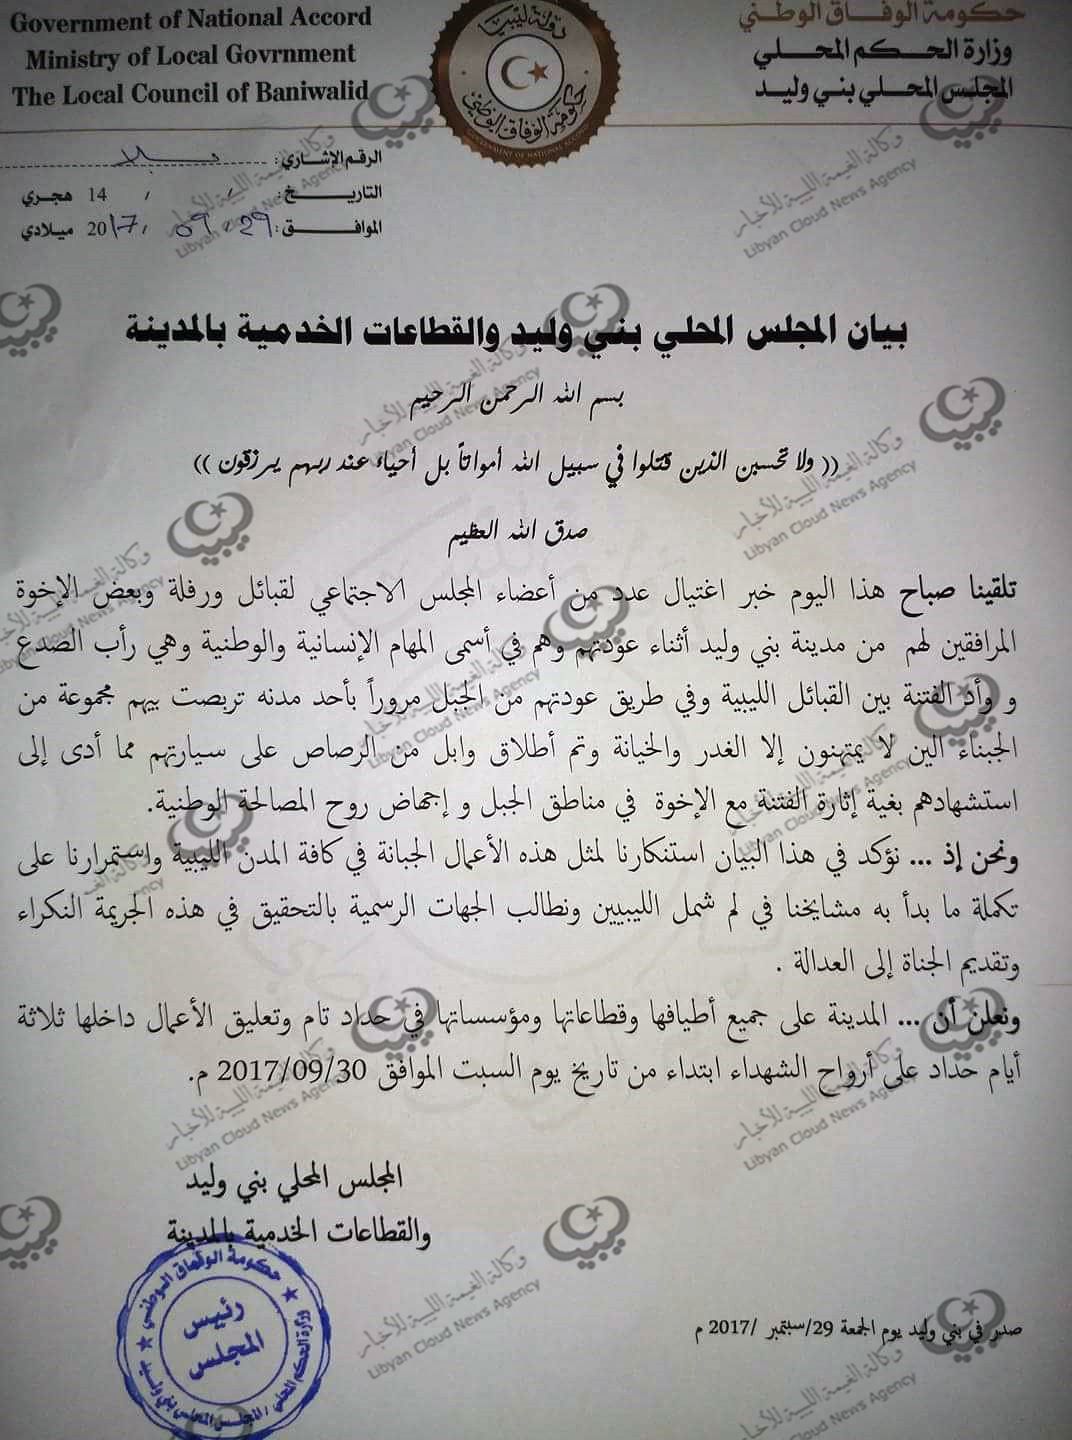 Government of National Accord
Ministry of Local Govrnment
The Local Council of Baniwalid
حكومة الوفاق الوطني
وزارة الحكم المحلي
المجلس المحلي بني وليد
دولة ليبيا
حكومة الوفاق الوطني
GOVERNMENT OF NATIONAL ACCORD
الرقم الإشاري:
التاريــــخ: / / 14 هجري
الموافــــق: 29 / 09 / 2017 ميلادي
بيان المجلس المحلي بني وليد والقطاعات الخدمية بالمدينة
بسم الله الرحمن الرحيم
(( ولا تحسبن الذين قتلوا في سبيل الله أمواتاً بل أحياء عند ربهم يرزقون ))
صدق الله العظيم
تلقينا صباح هذا اليوم خبر اغتيال عدد من أعضاء المجلس الاجتماعي لقبائل ورفلة وبعض الإخوة
المرافقين لهم من مدينة بني وليد أثناء عودتهم وهم في أسمى المهام الإنسانية والوطنية وهي رأب الصدع
و وأد الفتنة بين القبائل الليبية وفي طريق عودتهم من الجبل مروراً بأحد مدنه تربصت بيهم مجموعة من
الجبناء الين لا يمتهنون إلا الغدر والخيانة وتم أطلاق وابل من الرصاص على سيارتهم مما أدى إلى
استشهادهم بغية إثارة الفتنة مع الإخوة في مناطق الجبل و إجهاض روح المصالحة الوطنية.
ونحن إذ ... نؤكد في هذا البيان استنكارنا لمثل هذه الأعمال الجبانة في كافة المدن الليبية واستمرارنا على
تكملة ما بدأ به مشايخنا في لم شمل الليبيين ونطالب الجهات الرسمية بالتحقيق في هذه الجريمة النكراء
وتقديم الجناة إلى العدالة .
ونعلن أن ... المدينة على جميع أطيافها وقطاعاتها ومؤسساتها في حداد تام وتعليق الأعمال داخلها ثلاثة
أيام حداد على أرواح الشهداء ابتداء من تاريخ يوم السبت الموافق 2017/09/30 م.
المجلس المحلي بني وليد
والقطاعات الخدمية بالمدينة
حكومة الوفاق الوطني
رئيس
المجلس
وزارة الحكم المحلي / المجلس المحلي بني وليد
صدر في بني وليد يوم الجمعة 29/سبتمبر /2017 م
وكالة الغيمة الليبية للأخبار
Libyan Cloud News Agency